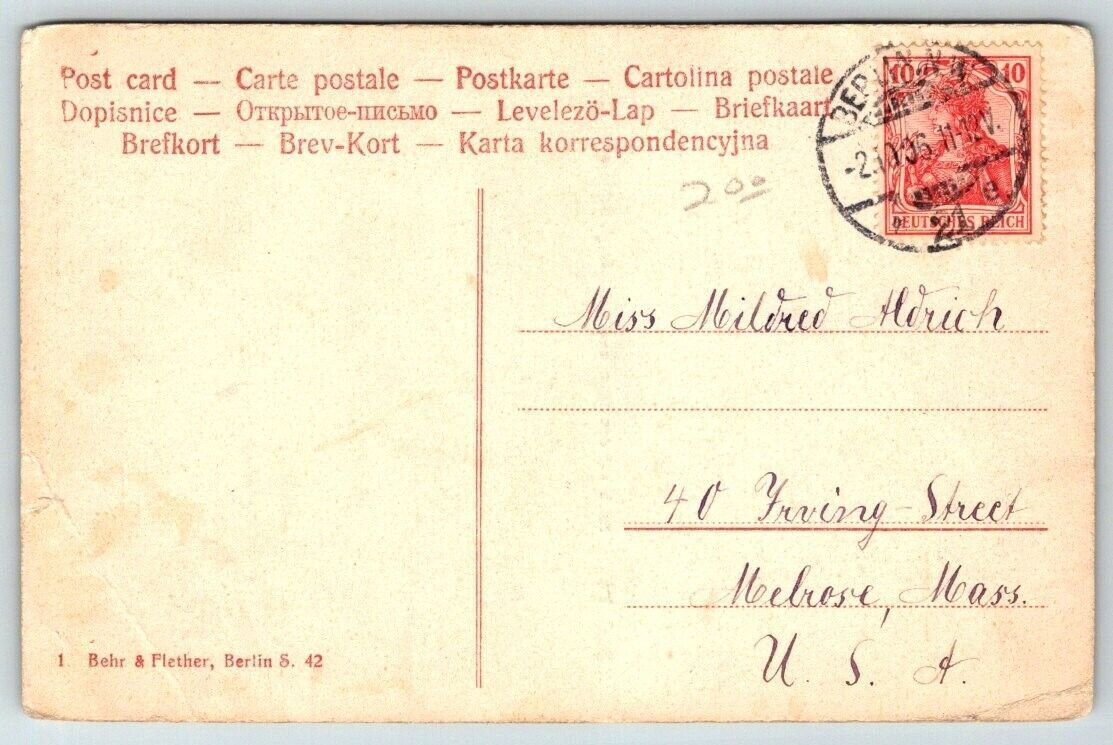 Post card — Carte postale — Postkarte — Cartolina postale
Dopisnice — Открытое-письмо — Levelezö-Lap — Briefkaart
Brefkort — Brev-Kort — Karta korrespondencyjna
10 10
BERLIN
11-12V.
DEUTSCHES REICH
200
Miss Mildred Aldrich
40 Irving-Street
Melrose, Mass.
U. S. A.
1 Behr & Flether, Berlin S. 42